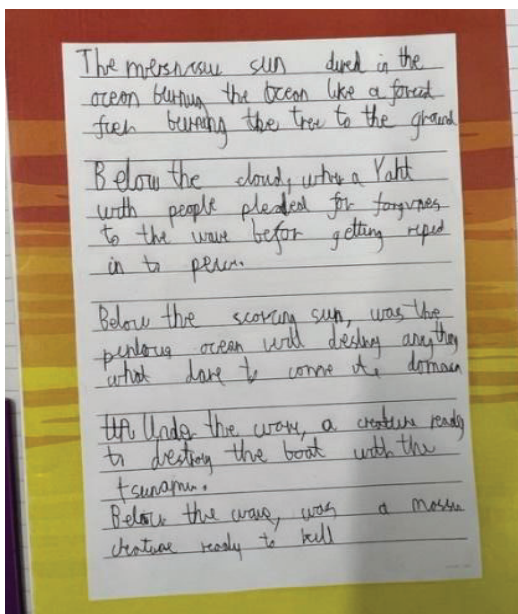 The sun dived in the
ocean burning the ocean like a forest
burning the tree to the ground
Below the cloud, a Yaht
with people pleded for forgvnes
to the wave befor getting riped
in to
Below the scorcing sun, was the
ocean will destroy anything
what dare to come its domain
Under the wave, a creature ready
to destroy the boat with the
tsunami.
Below the wave, was a
creature ready to kill